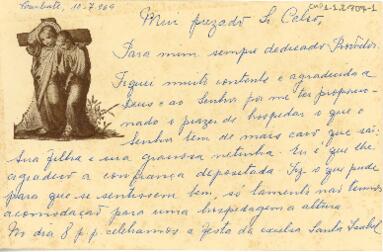 Taubaté, 10-7-969
Meu prezado Sr. Celso,
Para mim sempre dedicado Provedor.
Fiquei muito contente e agradecida a
Deus e ao Senhor por me ter proporcio-
nado o prazer de hospedar o que o
Senhor tem de mais caro que são:
Sua filha e sua graciosa netinha. Eu é que lhe
agradeço a confiança depositada. Fiz o que pude
para que se sentissem bem, só lamento não termos
acomodação para uma hospedagem a altura.
No dia 8 p.p. celebramos a festa da excelsa Santa Isabel